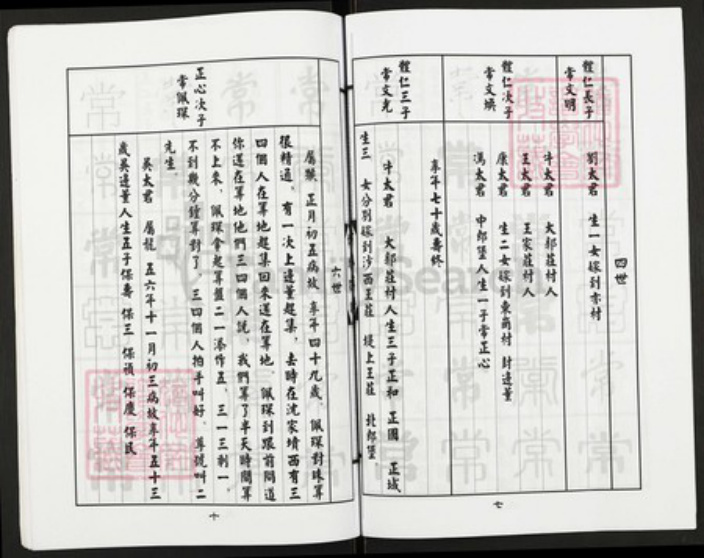 四世
體仁長子
常文明
劉太君 生一女嫁到市村
體仁次子
常文煥
牛太君 大郭莊村人
王太君 王家莊村人
康太君 生二女嫁到東崗村 封邊董
馮太君 中郎堡人生一子常正心
享年七十歲壽終
體仁三子
常文光
牛太君 大郭莊村人生三子正和 正國 正域
生三 女分別嫁到沙西王莊 堤上王莊 北郎堡
七
六世
正心次子
常佩琛
屬猴 正月初五病故 享年四十九歲 佩琛對珠算
很精通。有一次上邊董趕集，去時在沈家墳西有三
四個人在算地趕集回來還在算地，佩琛到跟前問道
你還在算地他們三四個人說，我們算了半天時間算
不上來，佩琛拿起算盤二一添作五，三一三剩一，
不到幾分鐘算對了，三四個人拍手叫好，算號叫二
先生。
吳太君 屬龍 五六年十一月初三病故享年五十三
歲吳邊董人生五子保壽 保三 保禎 保慶 保民
十